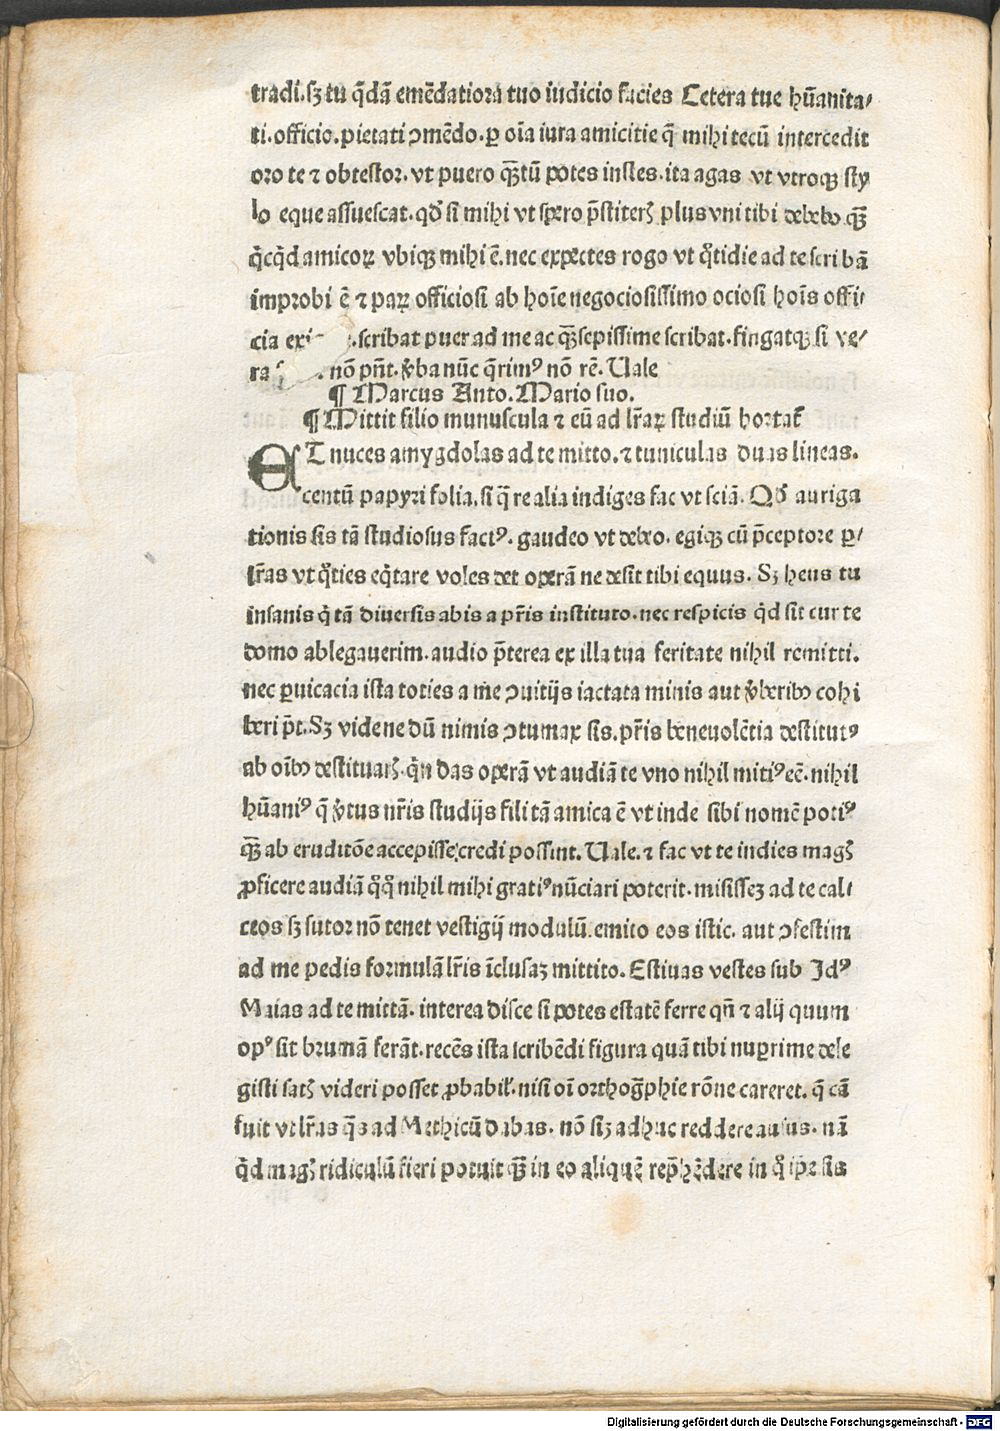 tradi.sꝫ tu q̄dā emēdatiora tuo iudicio facies Cetera tue hūanita/
ti.officio.pietati ↄmēdo.ꝑ oīa iura amicitie q̄ mihi tecū intercedit
oro te ⁊ obtestor. vt puero qȝtū potes instes.ita agas vt vtroqȝ sty
lo eque assuescat.qd̕ si mihi vt spero p̄stiterꝭ plus vni tibi debebo qȝ
q̄cq̄d amicoꝝ vbiqȝ mihi ē.nec expectes rogo vt q̊tidie ad te scribā
improbi ē ⁊ paꝝ officiosi ab hoīe negociosissimo ociosi hoīs offi/
cia exi .scribat puer ad me ac qȝsepissime scribat.fingatqȝ si ve/
ra nō pn̄t.v̄ba nūc q̄rimꝰ nō rē.Vale
¶ Marcus Anto.Mario suo.
¶ Mittit filio munuscula ⁊ eū ad lr̄aꝝ studiū hortat᷑
ET nuces amygdolas ad te mitto.⁊ tuniculas duas lineas.
centū papyri folia.si q̄ re alia indiges fac vt sciā. Qd̕ auriga
tionis sis tā studiosus factꝰ. gaudeo vt debeo. egiqȝ cū p̄ceptore ꝑ/
lr̄as vt q̊ties eq̇tare voles det operā ne desit tibi equus. Sꝫ heus tu
insanis q̇ tā diuersis abis a pr̄is instituto.nec respicis q̇d sit cur te
domo ablegauerim.audio p̄terea ex illa tua feritate nihil remitti.
nec ꝑuicacia ista toties a me ↄuitijs iactata minis aut v̄beribꝰ cohi
beri pt̄.Sꝫ vide ne dū nimis ↄtumax sis.pr̄is beneuolētia destitutꝰ
ab oībꝰ destituarꝭ.q̇n das operā vt audiā te vno nihil mitiꝰ eē.nihil
hūaniꝰ q̄ v̄tus nr̄is studijs fili tā amica ē vt inde sibi nomē potiꝰ
qȝ ab eruditōe accepisse credi possint.Vale.⁊ fac vt te indies magꝭ
ꝓficere audiā q̊ q̊ nihil mihi gratiꝰ nūciari poterit.misissē ad te cal/
ceos sꝫ sutor nō tenet vestigij modulū.emito eos istic. aut ↄfestim
ad me pedis formulā lr̄is īclusaȝ mittito. Estiuas vestes sub Idꝰ
Maias ad te mittā. interea disce si potes estatē ferre qn̄ ⁊ alij quum
opꝰ sit brumā ferāt.recēs ista scribēdi figura quā tibi nuꝑrime dele
gisti satꝭ videri posset ꝓbabil̕.nisi oī orthog̃phie rōne careret. q̄ cā
fuit vt lr̄as q̄s ad Methicū dabas. nō sīȝ adhuc reddere ausus. nā
q̇d magꝭ ridiculū fieri potuit qȝ in eo aliquē rep̄hēdere in q̊ ip̄e sis
Digitalisierung gefördert durch die Deutsche Forschungsgemeinschaft - DFG